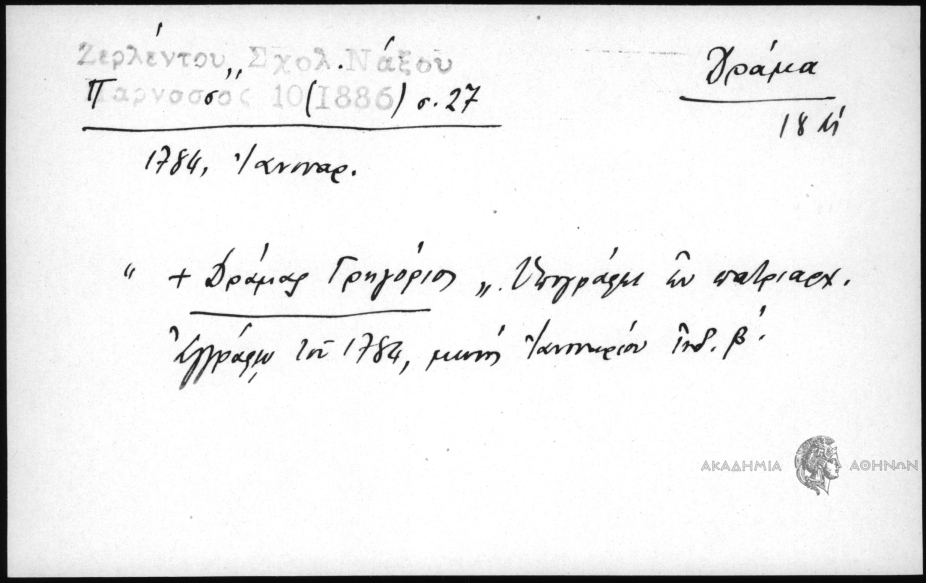 Ζερλέντου, Σχολ. Νάξου
Παρνασσός 10 (1886) σ. 27
Δράμα
18
1784, Ἰανουαρ.
" + Δράμας Γρηγόριος „ Ὑπογράφει ἐν πατριαρχ.
ἐγγράφῳ τοῦ 1784, μηνὸς Ἰανουαρίου Ἰνδ. β΄.
ΑΚΑΔΗΜΙΑ ΑΘΗΝΩΝ